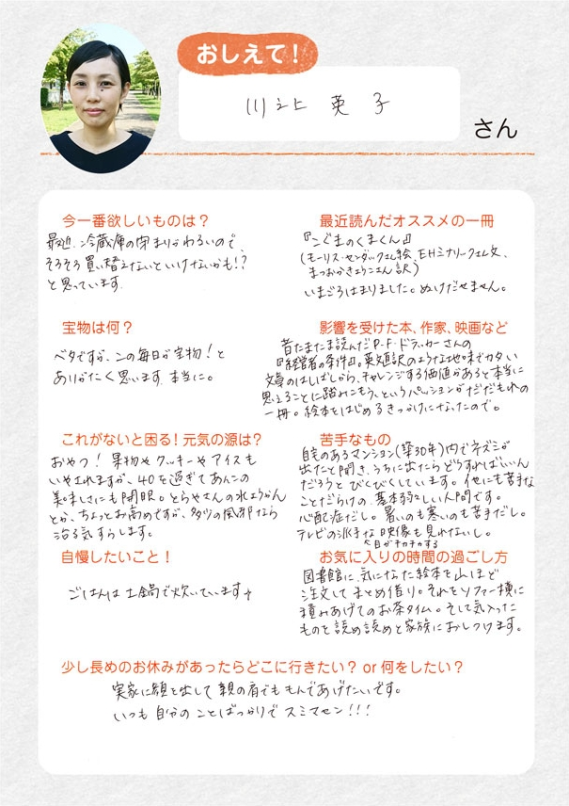 おしえて!
川上 英子
さん
今一番欲しいものは?
最近、冷蔵庫の閉まりがわるいので、
そろそろ買い替えないといけないかも!?
と思っています
宝物は何?
ベタですが、この毎日が宝物!と
ありがたく思います 本当に。
これがないと困る!元気の源は?
おやつ! 果物やクッキーやアイスも
いやされますが、40を過ぎてあんこの
美味しさにも開眼。とらやさんの水ようかん
とか、ちょっとお高めですが、多少の風邪なら
治る気すらします。
自慢したいこと!
ごはんは土鍋で炊いています
最近読んだオススメの一冊
『こぐまのくまくん』
(モーリス・センダックさん絵、E.H.ミナリックさん文、
まつおかきょうこさん訳)
いまごろはまりました。ぬけだせません。
影響を受けた本、作家、映画など
昔たまたま読んだP・F・ドラッカーさんの
『経営者の条件』。英文直訳のような地味でカタい
文章のはしばしから、チャレンジする価値があると本当に
思えることに踏みこもう、というパッションがだだもれの
一冊。絵本をはじめるきっかけになったので。
苦手なもの
自宅のあるマンション(築30年)内でネズミが
出たと聞き、うちに出たらどうすればいいん
だろうとびくびくしています。他にも苦手な
ことだらけの、基本弱々しい人間です。
心配症だし。暑いのも寒いのも苦手だし。
テレビの派手な映像も見れないし。
←目がチカチカする
お気に入りの時間の過ごし方
図書館に、気になった絵本を山ほど
注文してまとめ借り。それをソファー横に
積みあげてのお茶タイム。そして気入った
ものを読め読めと家族におしつけます。
少し長めのお休みがあったらどこに行きたい? or 何をしたい?
実家に顔を出して親の肩でももんであげたいです。
いつも自分のことばっかりでスミマセン!!!